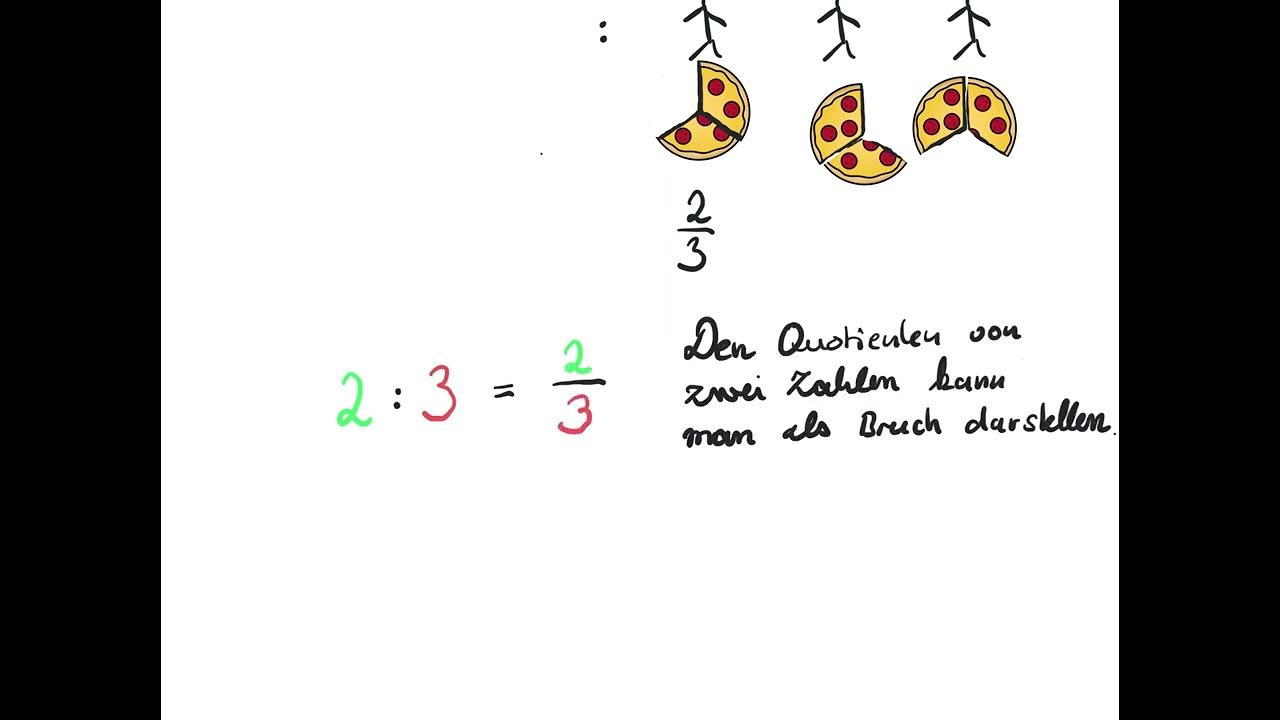 :
2
3
2 : 3 = 2/3
Den Quotienten von
zwei Zahlen kann
man als Bruch darstellen.